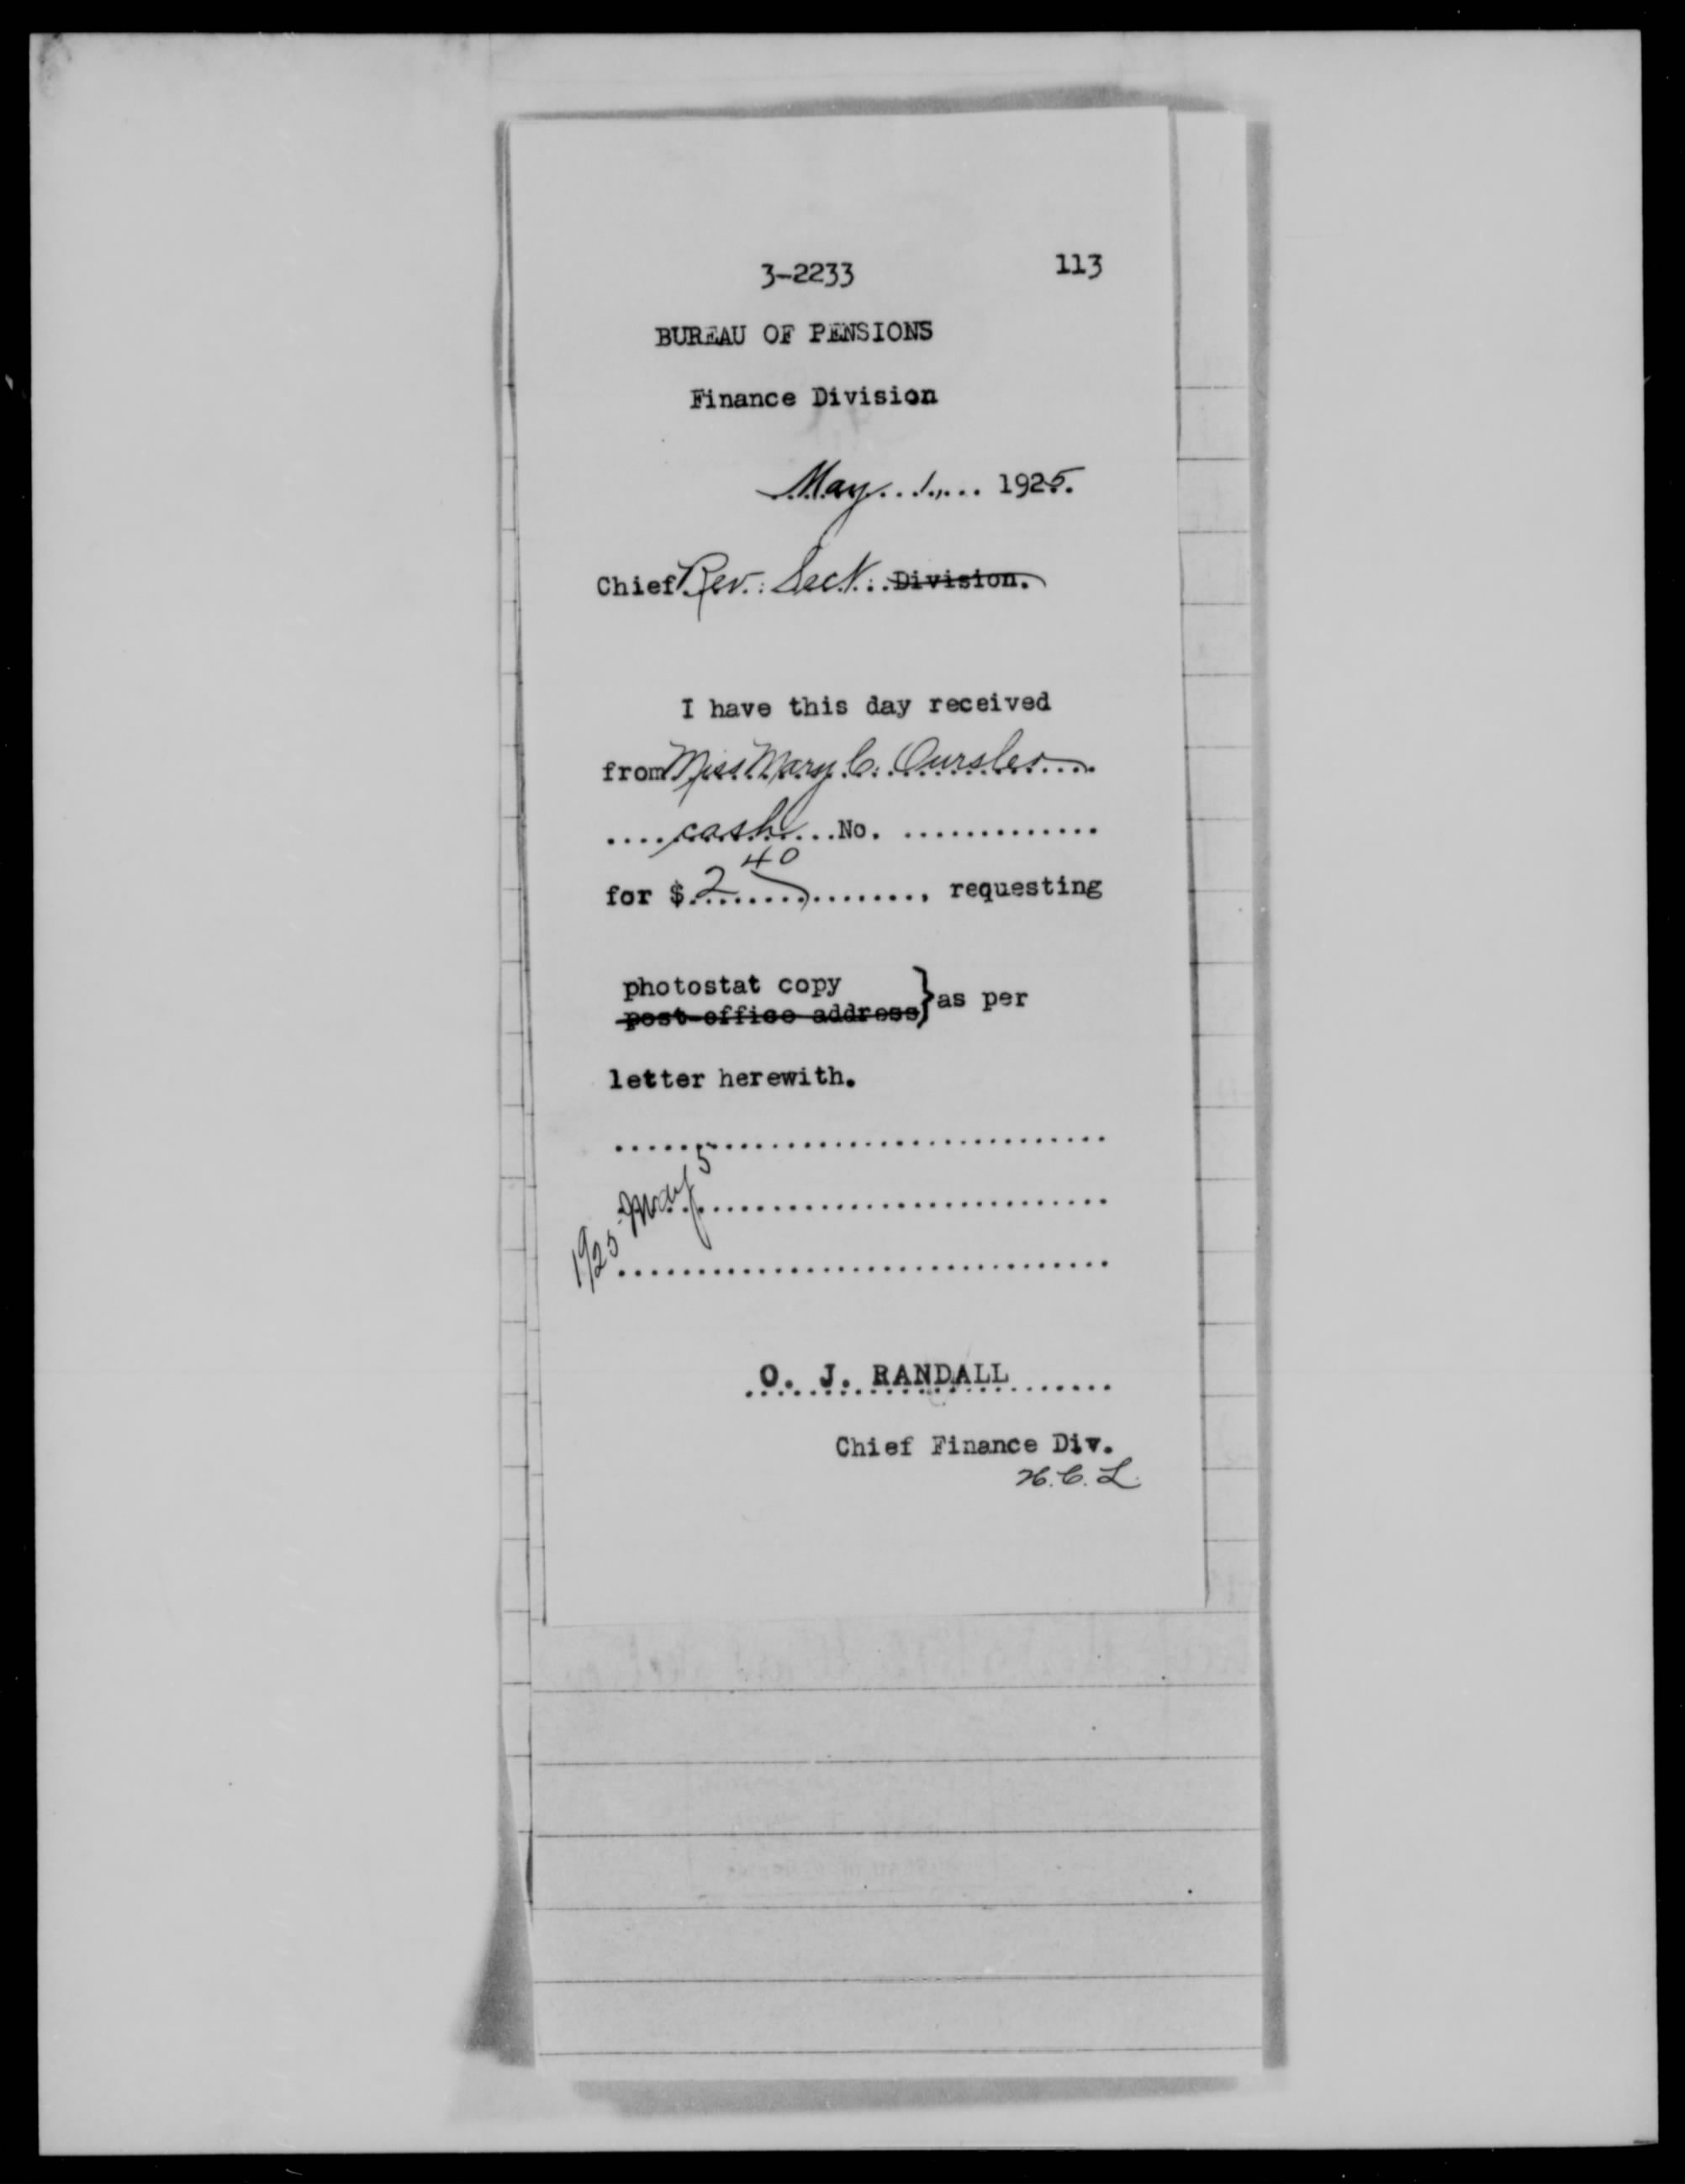 3-2233 113
BUREAU OF PENSIONS
Finance Division
May 1, 1925.
Chief Rev. Sect. Division.
I have this day received
from Miss Mary C. Oursler
cash No. .............
for $ 2 40 , requesting
photostat copy
post-office address } as per
letter herewith.
May 5
1925
O. J. RANDALL
Chief Finance Div.
H. C. L.